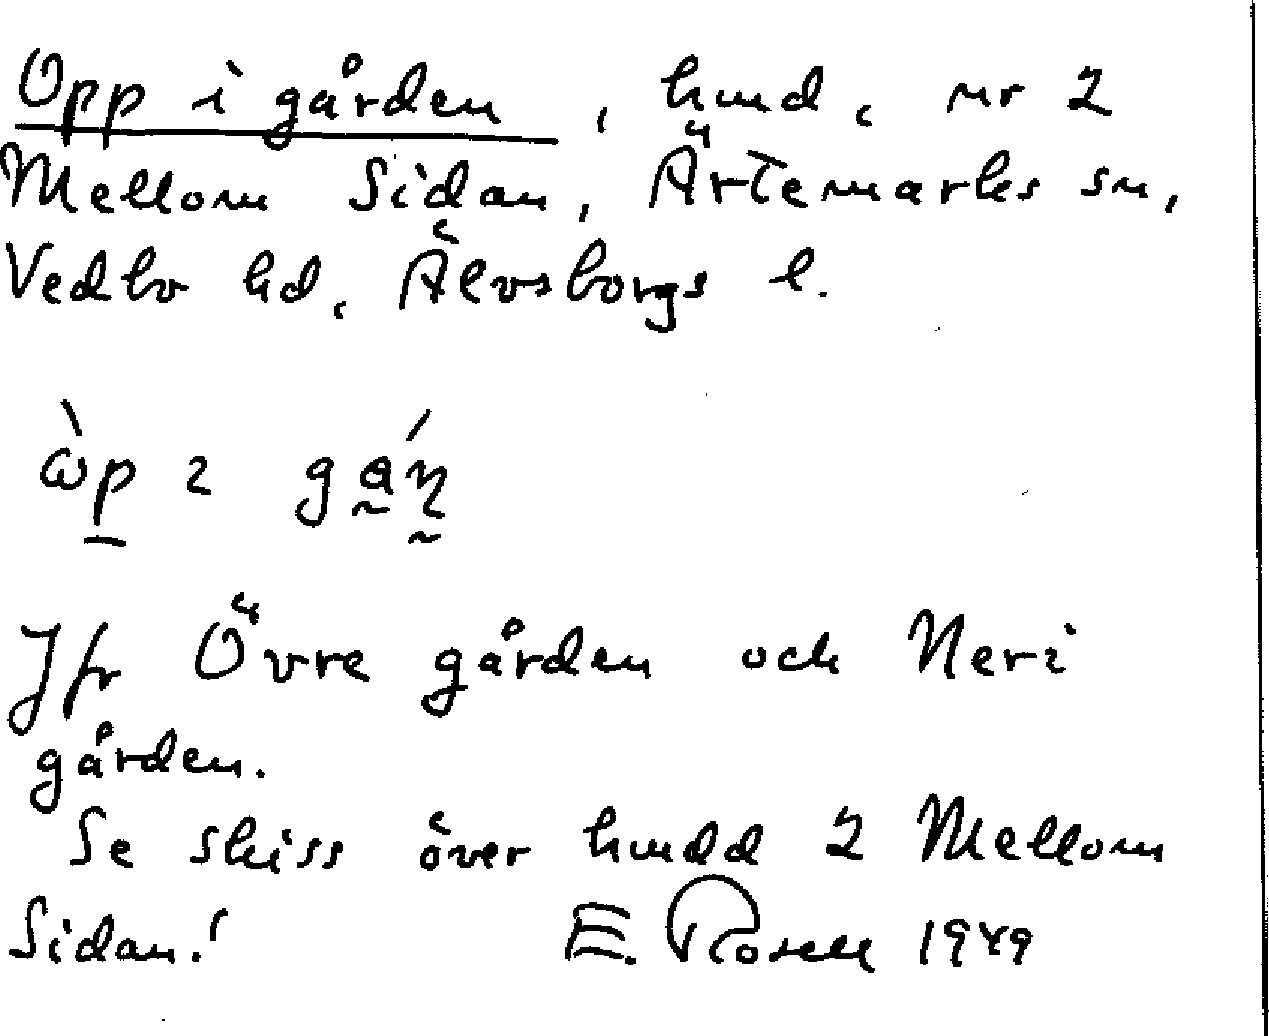 Opp i gården, hmd, nr 2
Mellom Sidan, Ärtemarks sn,
Vedbo hd, Älvsborgs l.
Jfr Övre gården och Neri
gården.
Se skiss över hmdd 2 Mellom
Sidan! E. Rosell 1949